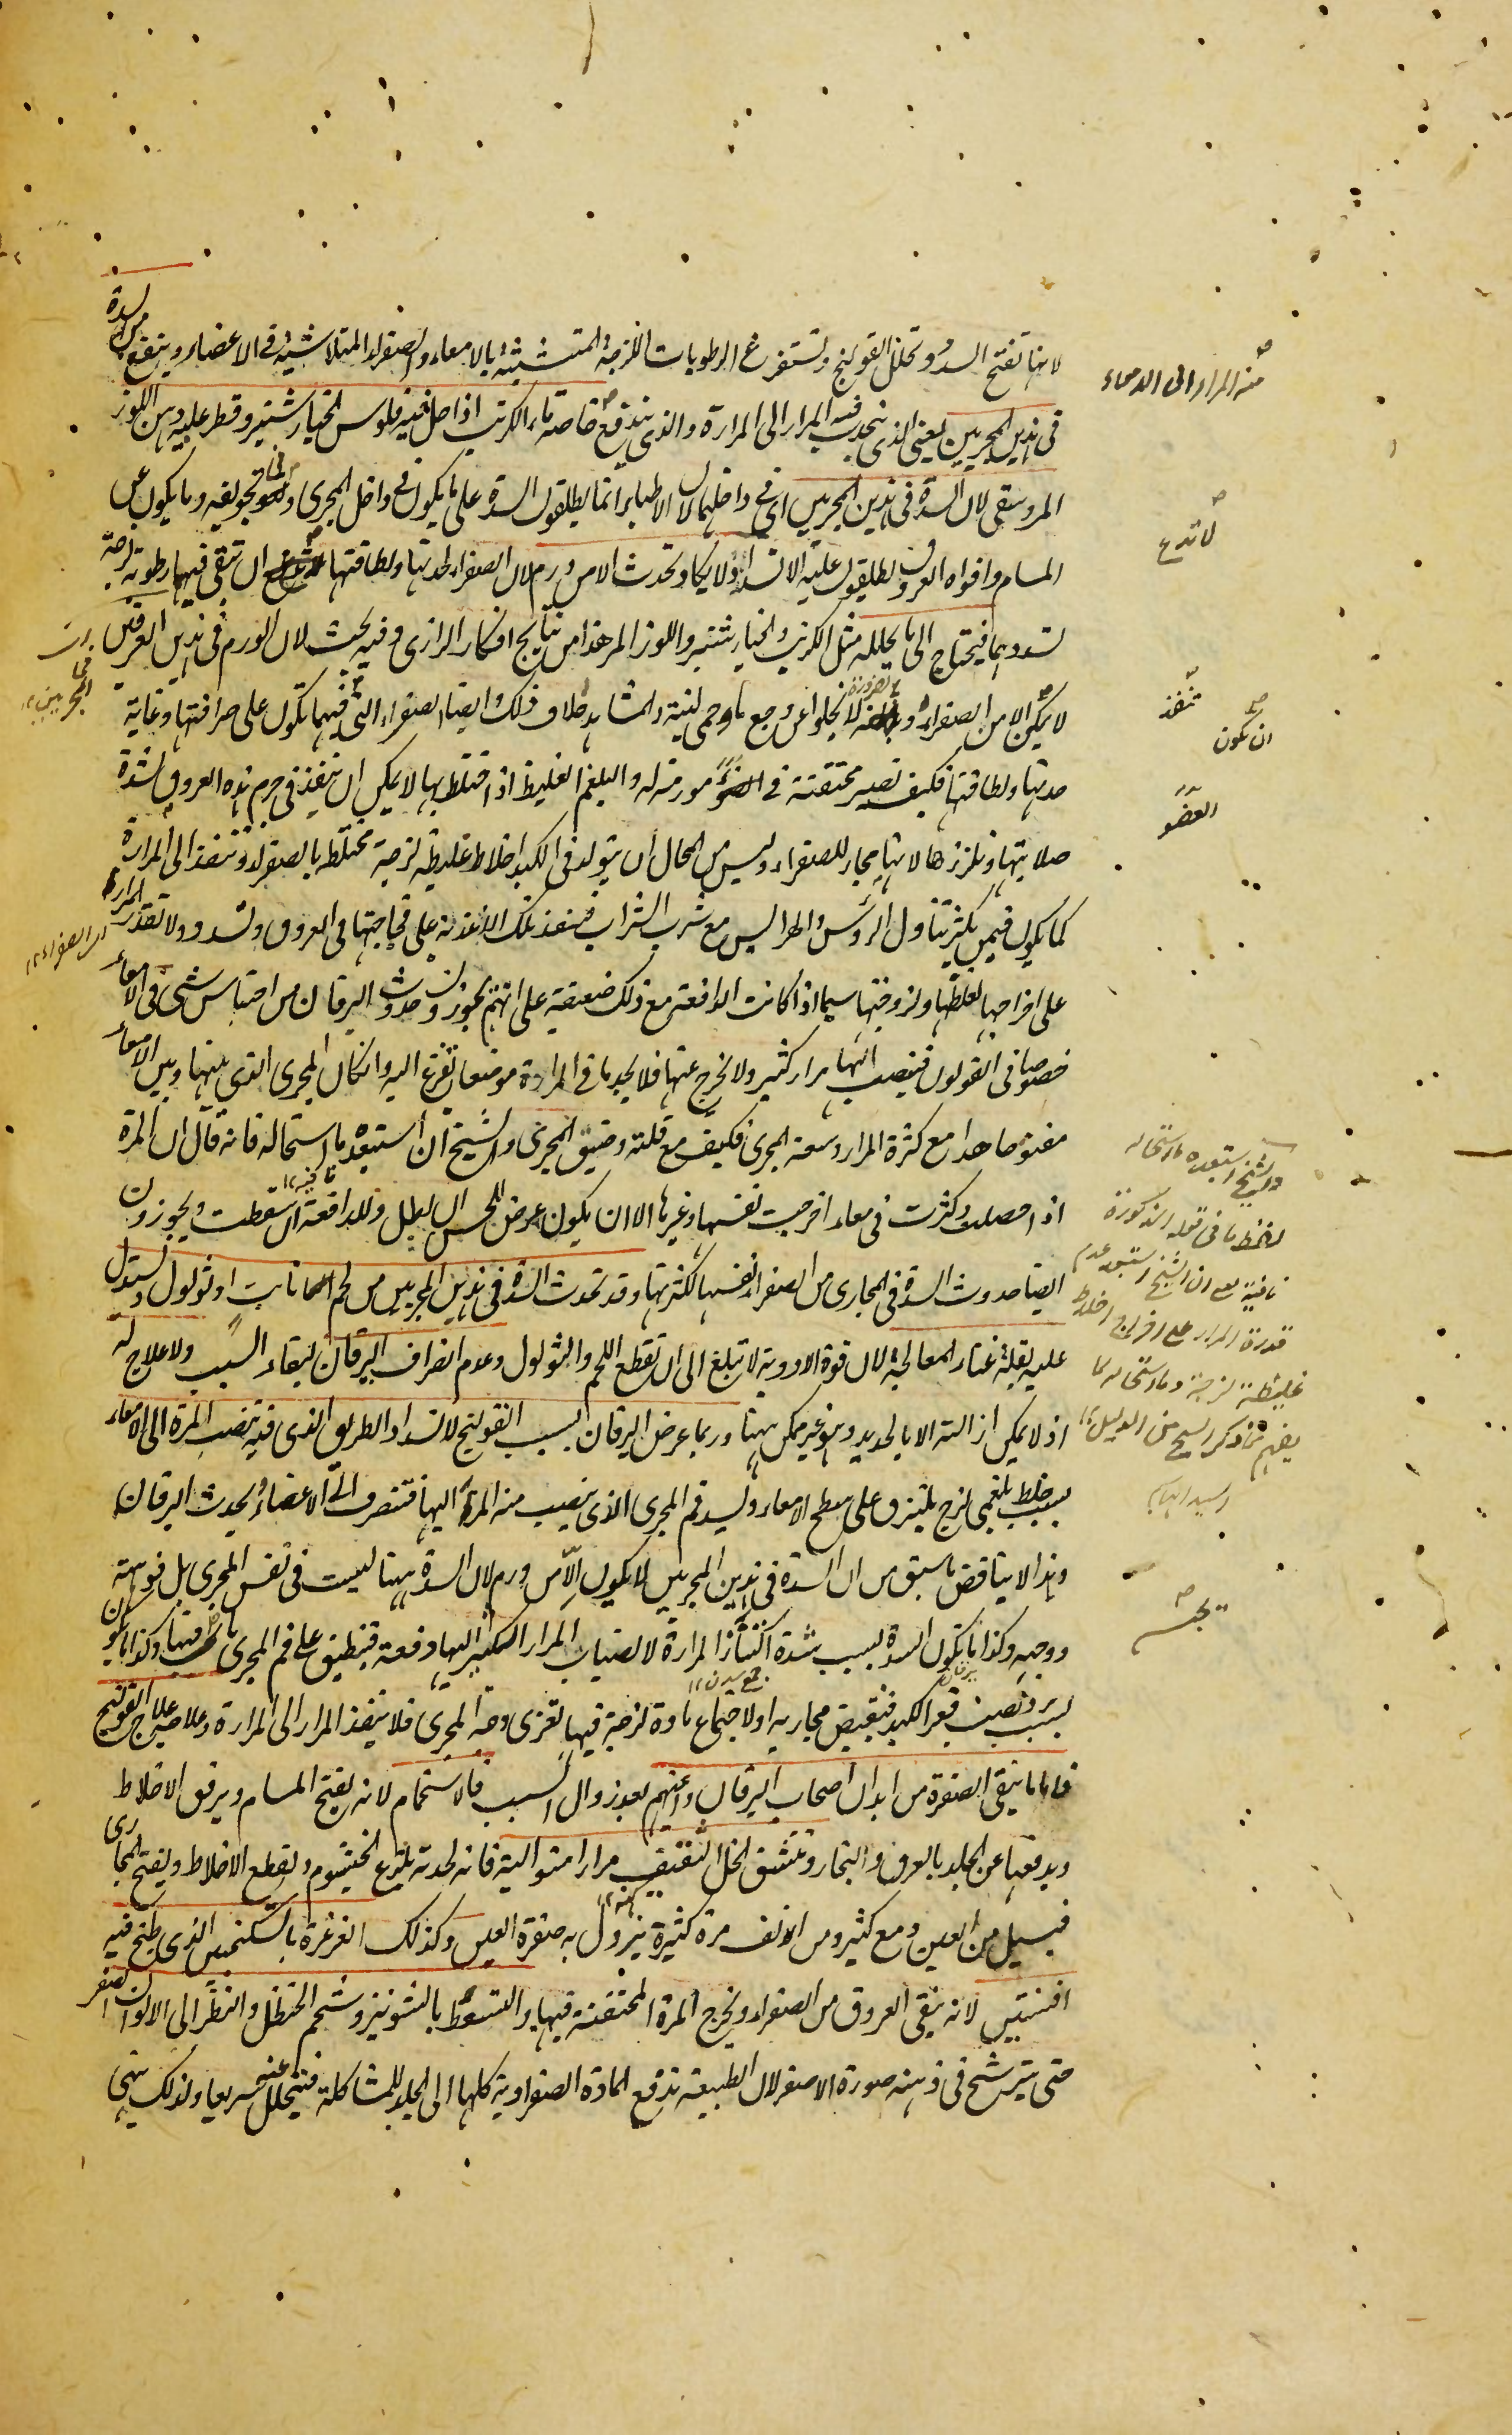 لانها تفتح السدد وتحلل القولنج وتستفرغ الرطوبات اللزجة المتشبثة بالامعاء والصفراء المتلاشية فى الاعضاء وينفع من السدة
فى هذين المجريين يعنى الذى ينجذب فيه المرار الى المرارة والذى يندفع خاصة ماء الكرنب اذا حل فيه فلوس الخيارشنبر وقطر عليه دهن اللوز
المر وسقى لان السدة فى هذين المجريين اى فى داخلهما لان الاطباء انما يطلقون السدة على ما يكون فى داخل المجرى وفى تجويفه وما يكون عن
المسام وافواه العروق يطلقون عليه الانسداد ولا يكاد تحدث الا من ورم لان الصفراء لحدتها ولطافتها ان تبقى فيها رطوبة لزجة
تسددهما فيحتاج الى ما يحلله مثل الكرنب والخيارشنبر واللوز المر هذا من نتايج افكار الرازى وفيه بحث لان الورم فى هذين العرقين
لا يكن الا من الصفراء و لا يخلوا عن وجع ما وحمى لينة والمشاهد خلاف ذلك وايضا الصفراء التى فيهما تكون على صرافتها وغاية
حدتها ولطافتها فكيف تصير محتقنة فى العضو مورمة له والبلغم الغليظ اذا اختلط بها لا يمكن ان ينفذ فى جرم هذه العروق لشدة
صلابتها وتلززها لانها مجار للصفراء وليس من المحال ان يتولد فى الكبد اخلاط غليظة لزجة مختلط بالصفراء وتنفذ الى المرارة
كما يكون فيمن يكثر تناول الرؤس والهرايس مع شرب الشراب فينفذ تلك الاغذية على فجاجتها فى العروق وتسدد ولا تقدر المرارة
على اخراجها لغلظها ولزوجتها سيما اذا كانت الدافعة مع ذلك ضعيفة على انهم يجوزون حدوث اليرقان من احتباس شى فى الامعاء
خصوصا فى القولون فينصب اليها مرار كثير ولا يخرج عنها فلا يجد ما فى المرارة موضعا تفرغ اليه وان كان المجرى الذى بينها وبين الامعاء
مفتوحا هذا مع كثرة المرار وسعة المجرى فكيف مع قلته وضيق المجرى والشيخ ان استبعد ما استحاله فانه قال ان المرة
اذا حصلت وكثرت فى معاء اخرجت نفسها وغيرها الا ان يكون عرض للحس ان بطل وللدافعة ان سقطت ويجوزون
ايضا حدوث السدة فى المجارى من الصفراء نفسها لكثرتها وقد تحدث السدة فى هذين المجريين من لحم نابت او ثولول ويستدل
عليه بقلة غناء المعالجة لان قوة الادوية لا تبلغ الى ان تقطع اللحم والثولول وعدم انصراف اليرقان لبقاء السبب ولا علاج له
اذ لا يمكن ازالته الا بالحديد وهو غير ممكن ههنا وربما عرض اليرقان بسبب القولنج لانسداد الطريق الذى فيه تنصب المرة الى الامعاء
بسبب خلط بلغمى لزج يلتزق على سطح الامعاء ويسد فم المجرى الذى ينصب منه المرة اليها فتنصرف الى الاعضاء ويحدث اليرقان
وهذا لا يناقض ما سبق من ان السدة فى هذين المجريين لا يكون الا من ورم لان السدة ههنا ليست فى نفس المجرى بل فوهته
ووجهه وكذا ما تكون السدة بسبب شدة اكتناز المرارة لانصباب المرار الكثير اليها دفعة فينطبق على فم المجرى ما فيها وكذا ما يكون
بسبب برد يصيب قعر الكبد فينقبض مجاريه اولا جماع مادة لزجة فيها تغرى وجه المجرى فلا ينفذ المرار الى المرارة وعلاجه علاج القولنج
فاما ما ينقى الصفرة من ابدان اصحاب اليرقان واعينهم بعد زوال السبب فالاستحمام لانه يفتح المسام ويرقق الاخلاط
ويدفعها عن الجلد بالعرق والبخار وتنشق الخل الثقيف مرارا متوالية فانه لحدته يلذع الخيشوم ويقطع الاخلاط ويفتح المجارى
فيسيل من العين دمع كثير ومن الانف مرة كثيرة يزول به صفرة العين وكذلك الغرغرة بالسكنجبين الذى طبخ فيه
افسنتين لانه ينقى العروق من الصفراء ويخرج المرة المحتقنة فيها والتسعط بالشونيز وشحم الحنظل والنظر الى الالوان الصفر
حتى يترشح فى ذهنه صورة الاصفر لان الطبيعة تدفع المادة الصفراوية كلها الى الجلد للمشاكلة فيتحلل عنه سريعا ولذلك ينهى
منه المرار الى الامعاء
لا تدع
تنفذ
ان يكون
العضو
والشيخ استبعده ما استحاله
لفظ ما فى قوله المذكورة
نافية مع ان الشيخ استبعد عدم
قدرة المرار على اخراج اخلاط
غليظة لزجة وما استحاله كما
يفهم من ذكر الشيخ من الدليل
المجريين
اى الصفراء
نافية